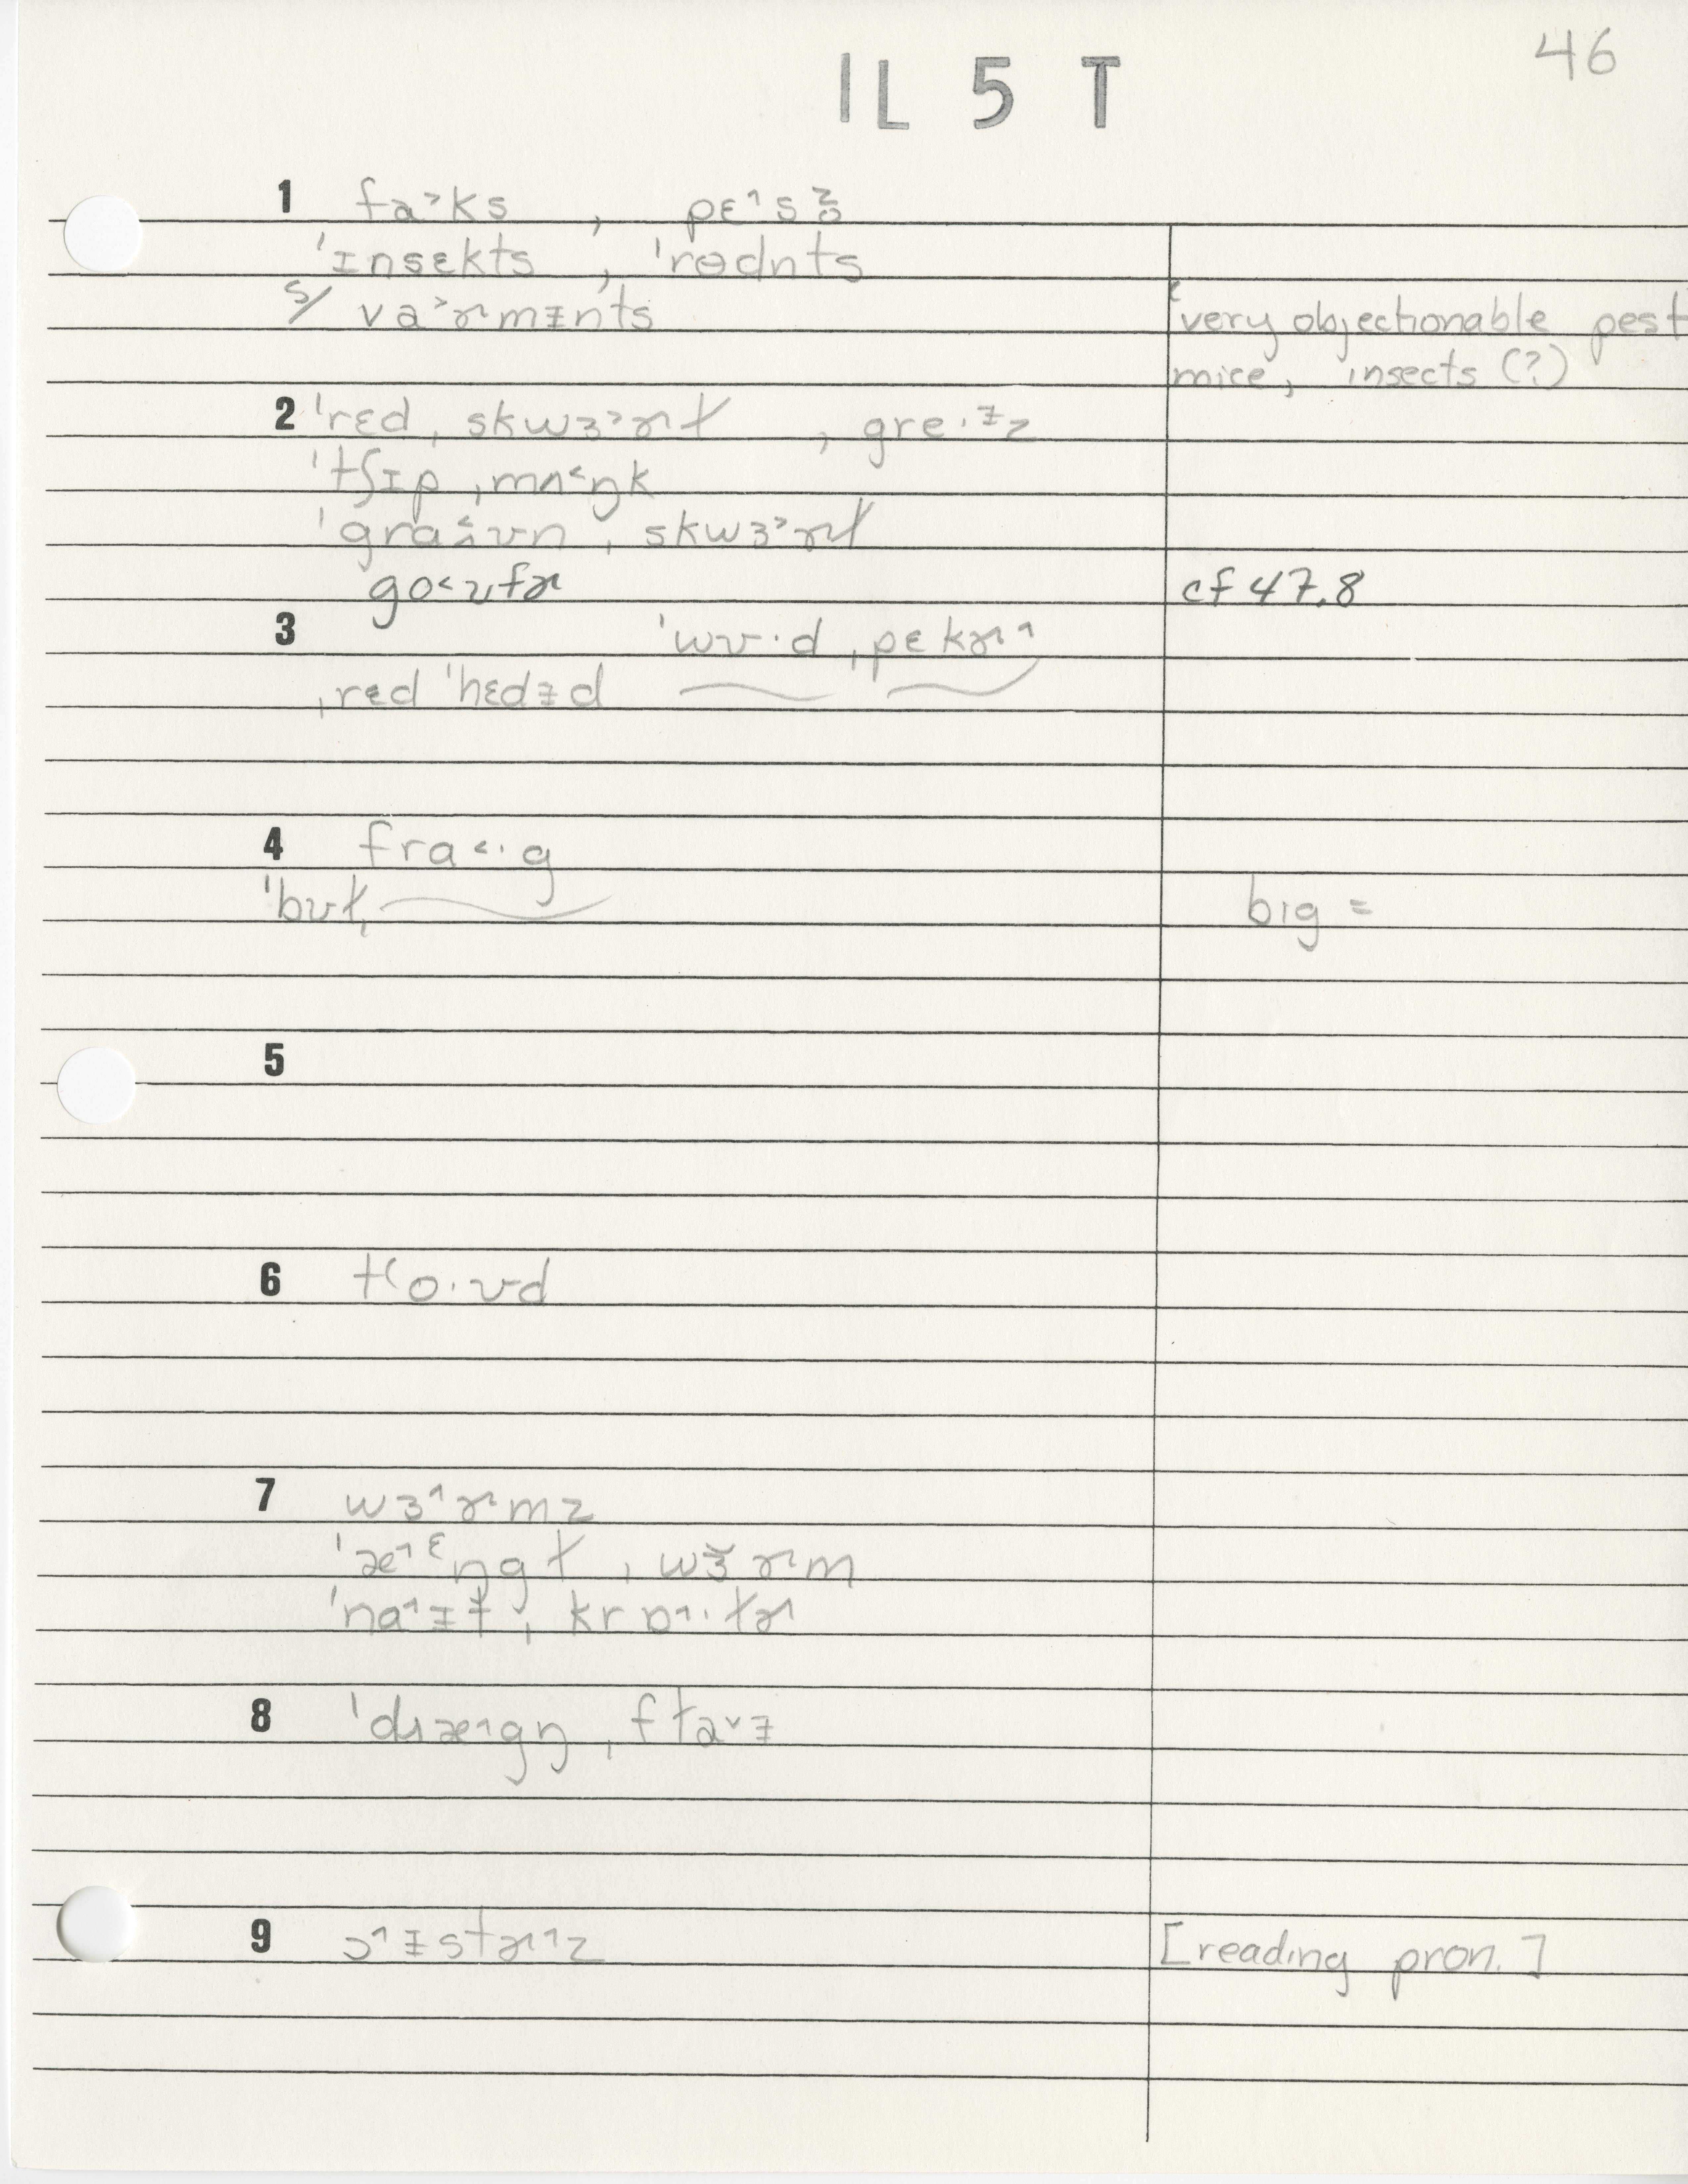 46
IL 5 T
1 fa˃ks , pɛ˄s
ˈɪnsɛkts , ˈrɵdn̩ts
s/ va˃ɚmɪ̵nts ʻvery objectionable pest
mice, insects (?)
2 ˈrɛd ˌskwɜ˃ɚɫ , gre·ɪ̵z
ˈtʃɪp ˌmʌ˂ŋk
ˈgra˂ʊn ˌskwɜ˃ɚɫ
go˂ʊfɚ cf 47.8
3 ˈwʊ·d ˌpɛkɚ˄
ˌrɛd ˈhɛdɪ̵d
4 fra˂·g
ˈbʊɫ big =
5
6 tʻo·ʊd
7 wɜ˄ɚmz
ˈæ˄ᵋŋgɫ ˌwɜ̆ɚm
ˈna˄ɪ̵t̬ ˌkrɒ˄·ɫɚ
8 ˈdɹæ˄gŋ̍ ˌflav̬ɪ̵
9 ɔ˄ɪ̵stɚ˄z [reading pron.]